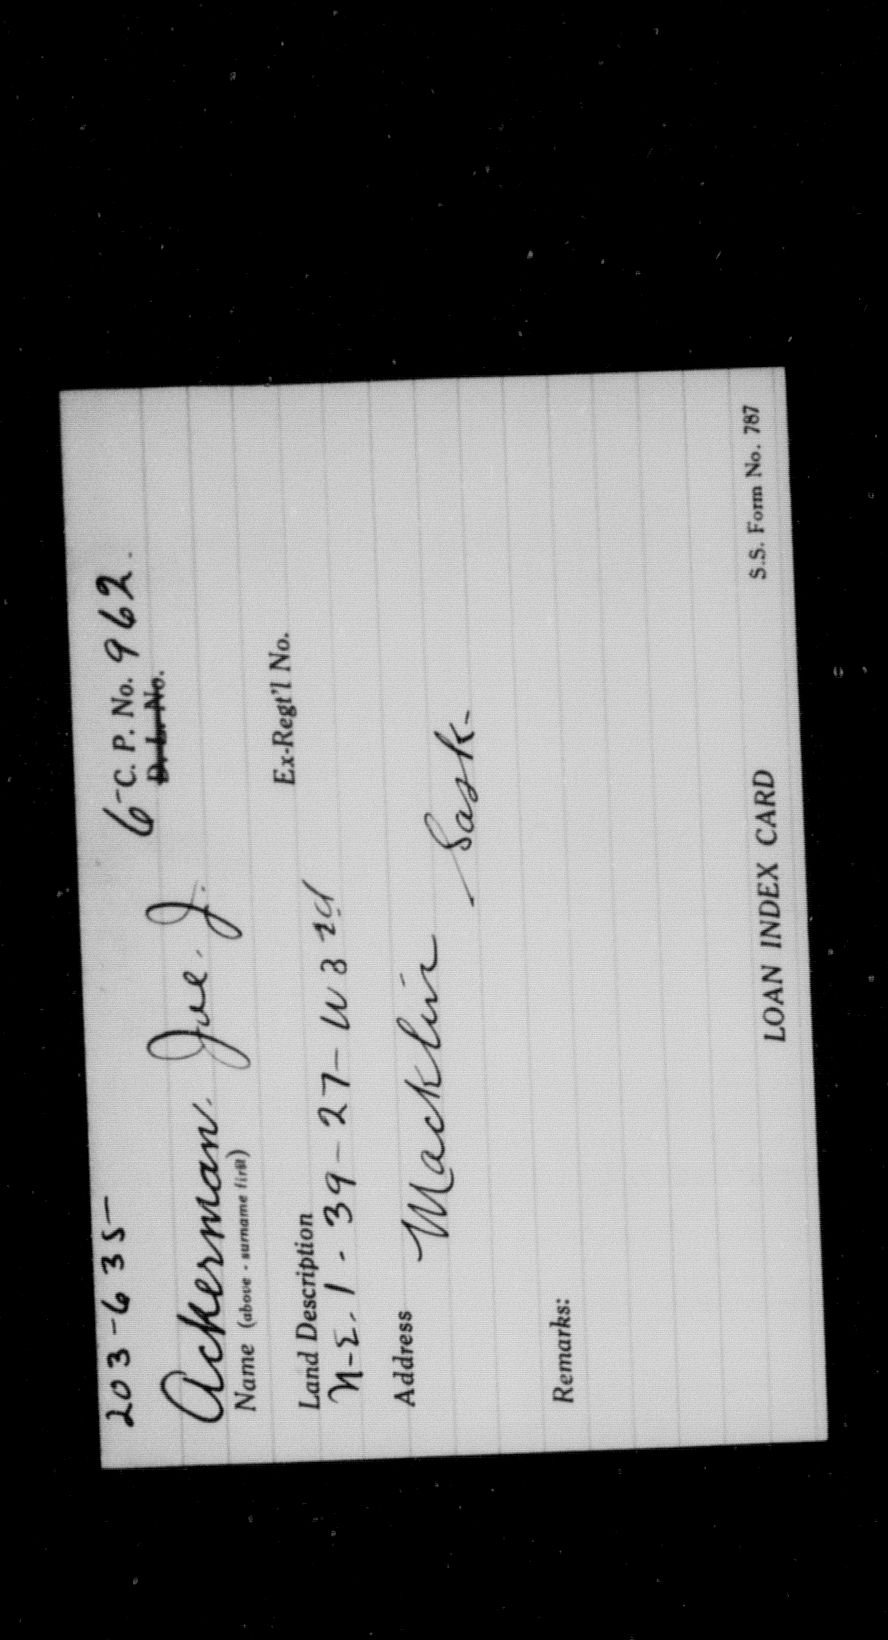 203-635-
6-C. P. No. 962.
D. L. No.
Ackerman. Joe. J.
Name (above - surname first)
Ex-Regt'l No.
Land Description
N-E. 1 - 39 - 27 - W 3rd
Address
Macklin Sask-
Remarks:
LOAN INDEX CARD
S.S. Form No. 787